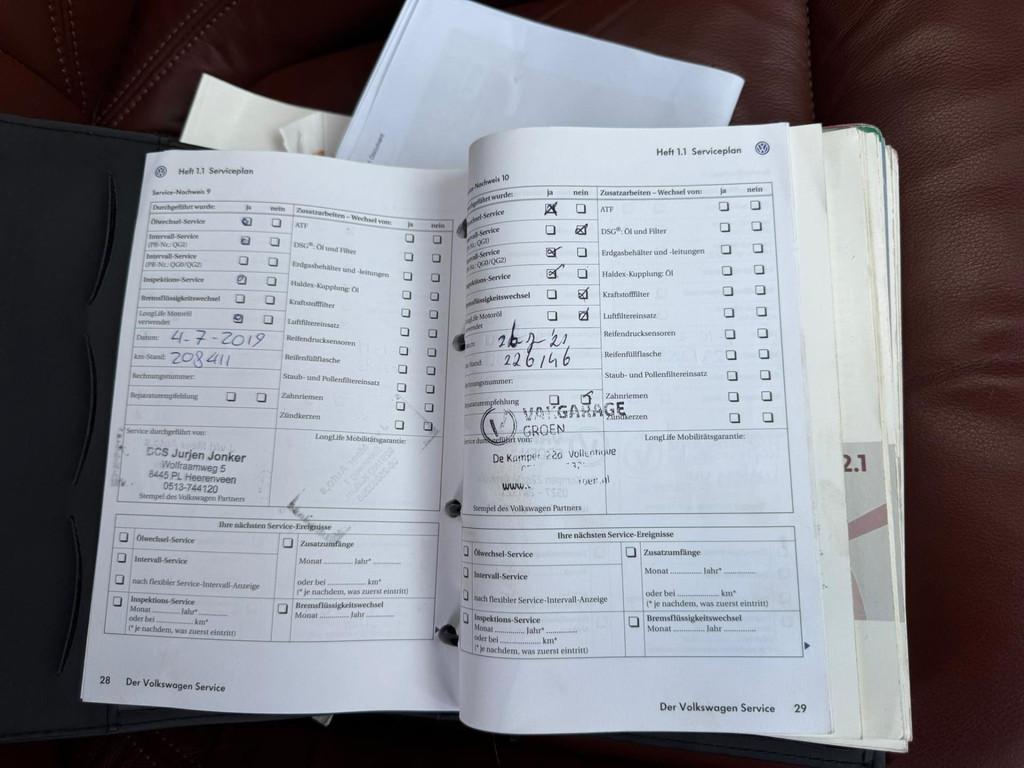 Heft 1.1 Serviceplan
Service-Nachweis 9
Durchgeführt wurde: ja nein
Ölwechsel-Service
Intervall-Service
(PR-Nr.: QG2)
Intervall-Service
(PR-Nr.: QG0/QG2)
Inspektions-Service
Bremsflüssigkeitswechsel
LongLife Motoröl
verwendet
Datum: 4-7-2019
km-Stand: 208411
Rechnungsnummer:
Reparaturempfehlung
Zusatzarbeiten – Wechsel von: ja nein
ATF
DSG®: Öl und Filter
Erdgasbehälter und -leitungen
Haldex-Kupplung: Öl
Kraftstofffilter
Luftfiltereinsatz
Reifendrucksensoren
Reifenfüllflasche
Staub- und Pollenfiltereinsatz
Zahnriemen
Zündkerzen
Service durchgeführt von:
DCS Jurjen Jonker
Wolfraamweg 5
8445 PL Heerenveen
0513-744120
Stempel des Volkswagen Partners
LongLife Mobilitätsgarantie:
Ihre nächsten Service-Ereignisse
Ölwechsel-Service
Intervall-Service
nach flexibler Service-Intervall-Anzeige
Inspektions-Service
Monat ............ Jahr* ............
oder bei ............ km*
(* je nachdem, was zuerst eintritt)
Zusatzumfänge
Monat ............ Jahr* ............
oder bei ............ km*
(* je nachdem, was zuerst eintritt)
Bremsflüssigkeitswechsel
Monat ............ Jahr ............
28 Der Volkswagen Service
Heft 1.1 Serviceplan
Nachweis 10
wurde: ja nein
-Service
-Service
QG2)
-Service
QG0/QG2)
-Service
wechsel
LongLife Motoröl
226146
Zusatzarbeiten – Wechsel von: ja nein
ATF
DSG®: Öl und Filter
Erdgasbehälter und -leitungen
Haldex-Kupplung: Öl
Kraftstofffilter
Luftfiltereinsatz
Reifendrucksensoren
Reifenfüllflasche
Staub- und Pollenfiltereinsatz
Zahnriemen
VAKGARAGE
GROEN
De Kampen 22a Vollenhove
www.
Stempel des Volkswagen Partners
LongLife Mobilitätsgarantie:
Ihre nächsten Service-Ereignisse
Ölwechsel-Service
Intervall-Service
nach flexibler Service-Intervall-Anzeige
Inspektions-Service
Monat ............ Jahr* ............
oder bei ............ km*
(* je nachdem, was zuerst eintritt)
Zusatzumfänge
Monat ............ Jahr* ............
oder bei ............ km*
(* je nachdem, was zuerst eintritt)
Bremsflüssigkeitswechsel
Monat ............ Jahr ............
Der Volkswagen Service 29
2.1